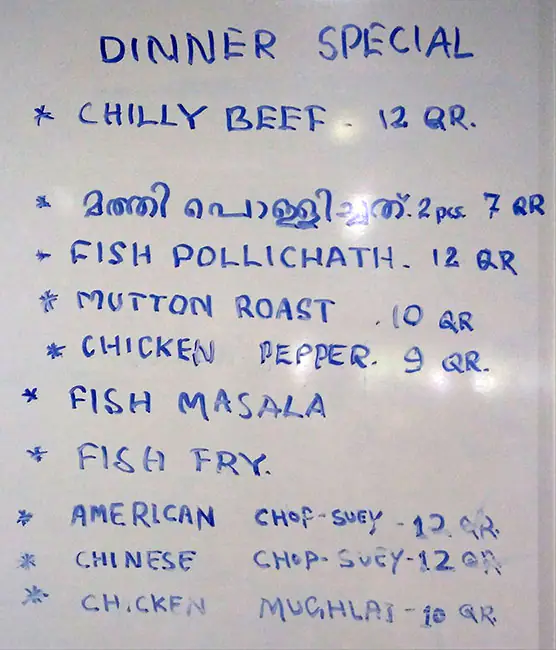 DINNER SPECIAL
* CHILLY BEEF - 12 QR.
* മത്തി പൊള്ളിച്ചത്. 2 pcs. 7 QR
* FISH POLLICHATH. 12 QR
* MUTTON ROAST .10 QR
* CHICKEN PEPPER. 9 QR.
* FISH MASALA
* FISH FRY.
* AMERICAN CHOP-SUEY - 12 QR.
* CHINESE CHOP-SUEY - 12 QR
* CHICKEN MUGHLAI - 10 QR.